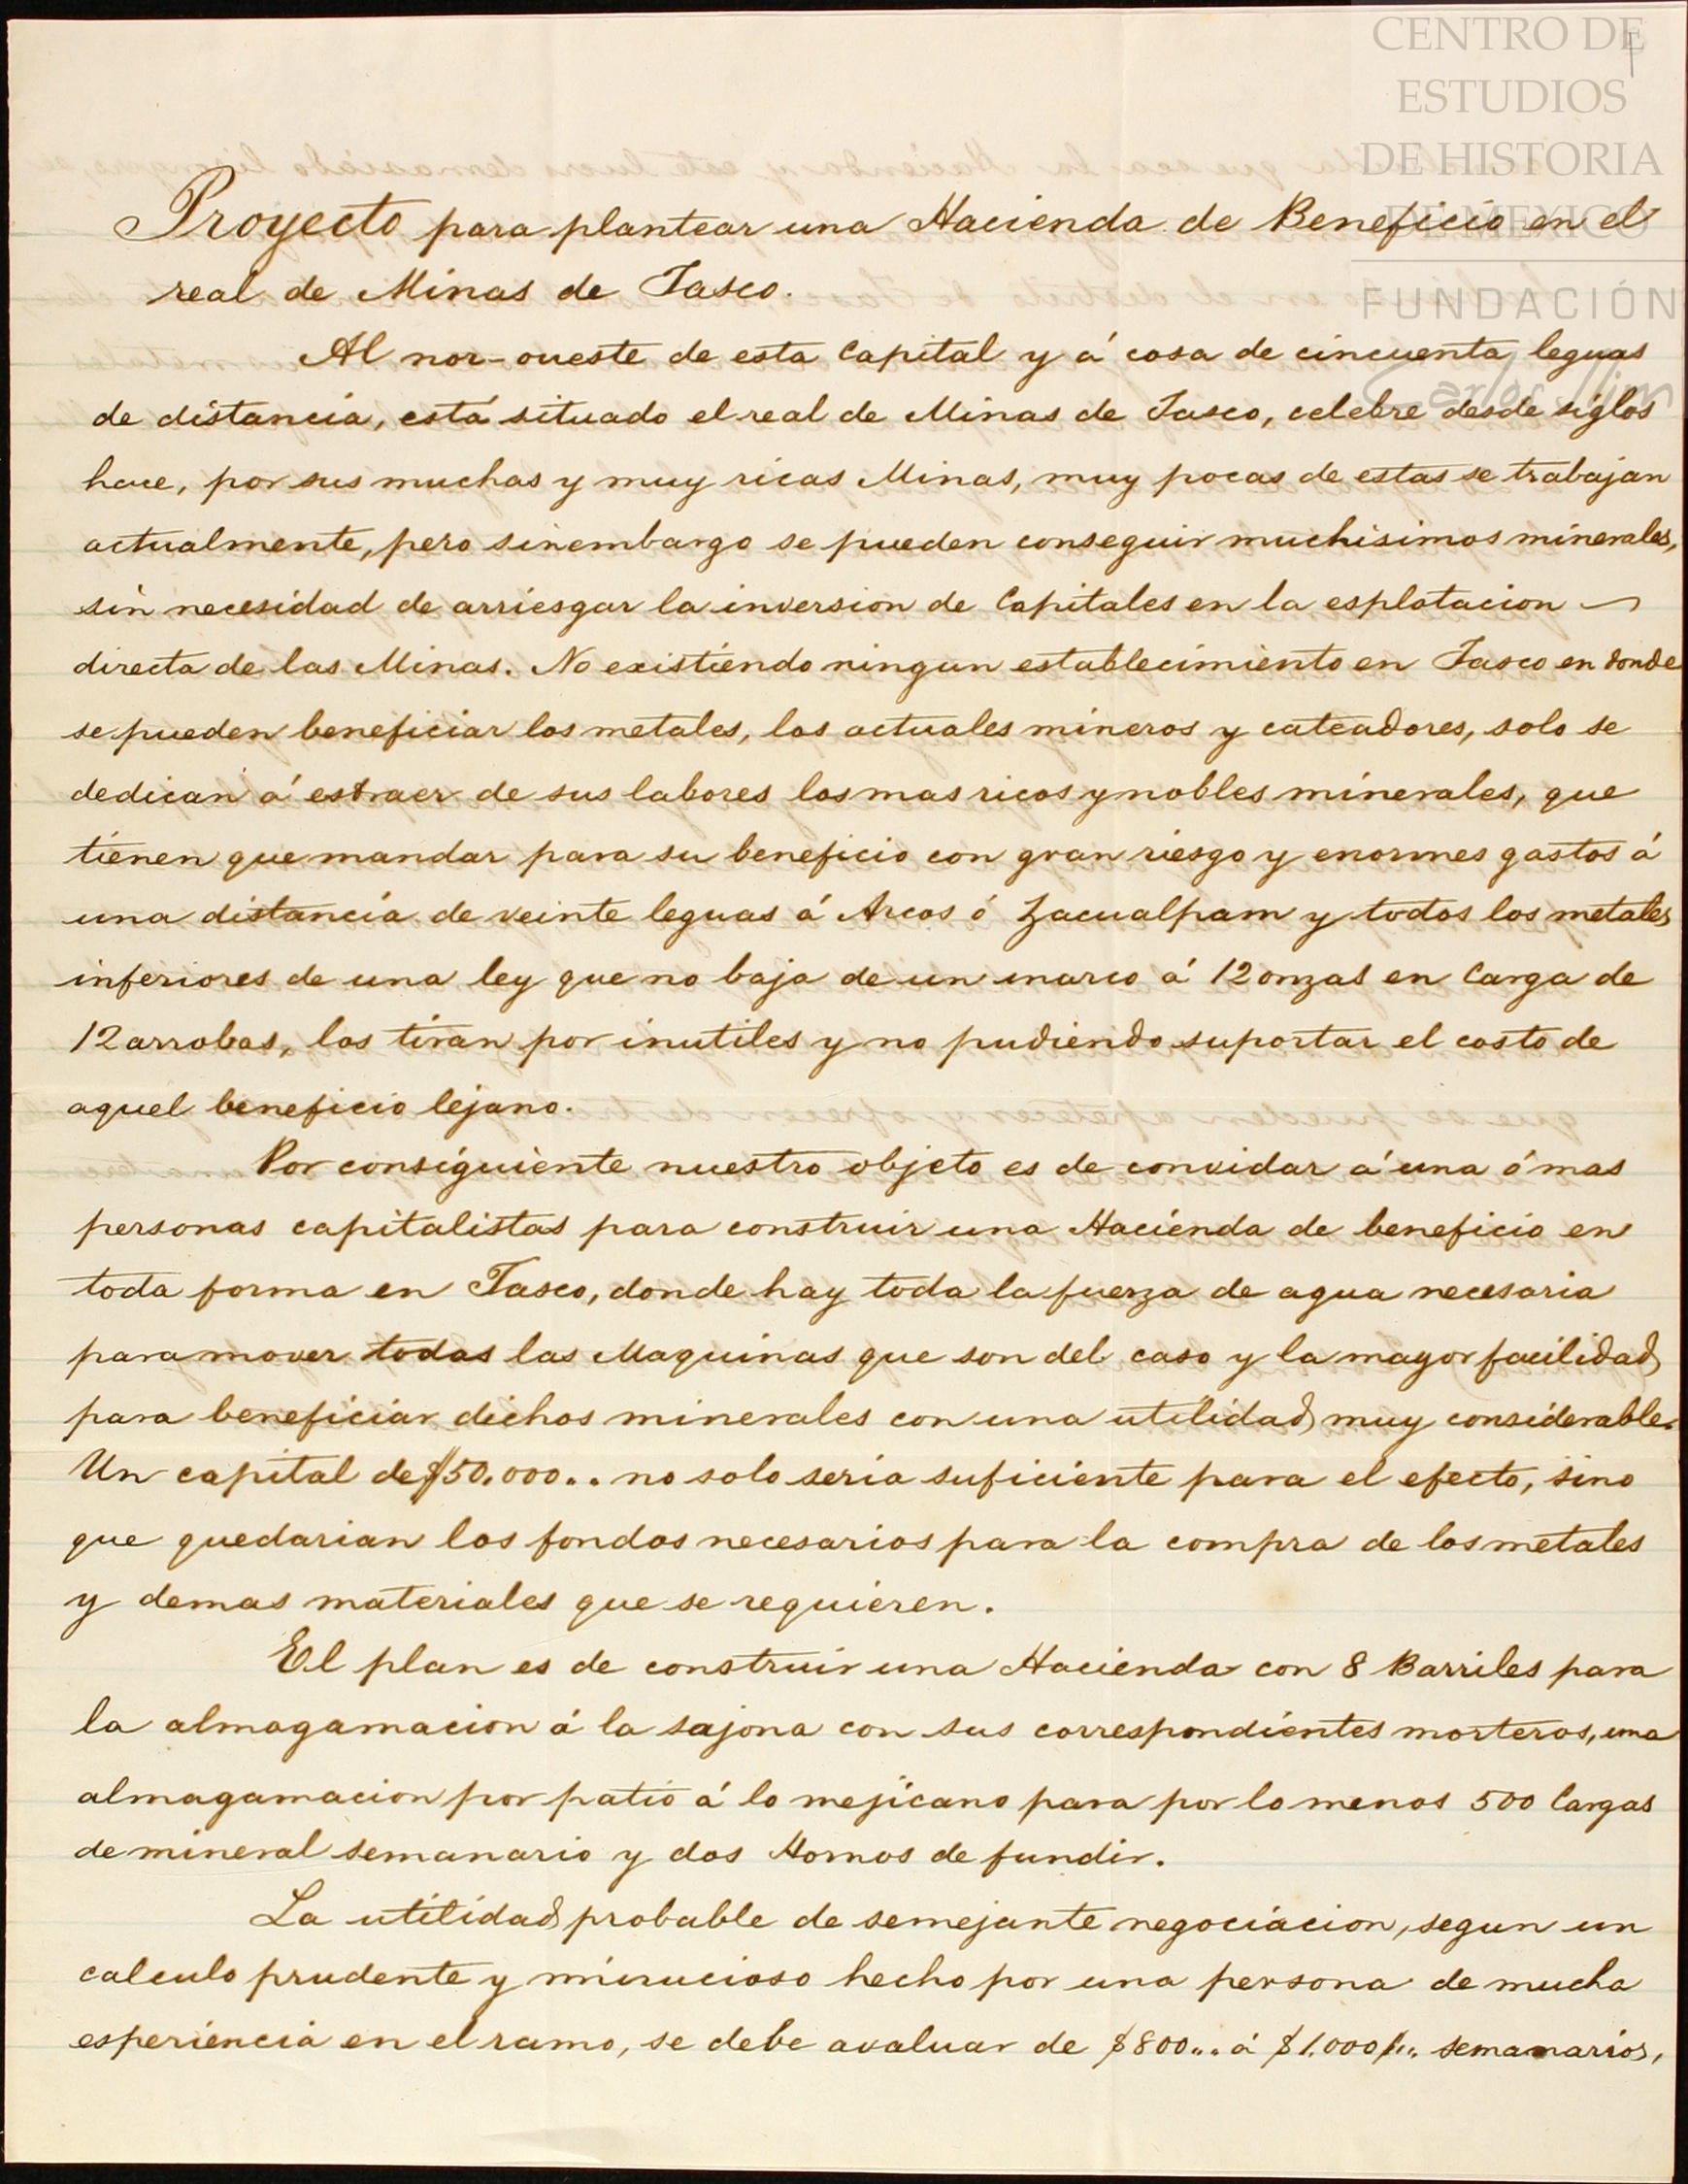 CENTRO DE
ESTUDIOS
DE HISTORIA
DE MEXICO
FUNDACIÓN
Carlos Slim
Proyecto para plantear una Hacienda de Beneficio en el
real de Minas de Tasco.
Al nor-oueste de esta Capital y á cosa de cincuenta leguas
de distancia, está situado el real de Minas de Tasco, celebre desde siglos
hace, por sus muchas y muy ricas Minas, muy pocas de estas se trabajan
actualmente, pero sinembargo se pueden conseguir muchisimos minerales,
sin necesidad de arriesgar la inversion de Capitales en la esplotacion
directa de las Minas. No existiendo ningun establecimiento en Tasco en donde
se pueden beneficiar los metales, los actuales mineros y cateadores, solo se
dedican á estraer de sus labores los mas ricos y nobles minerales, que
tienen que mandar para su beneficio con gran riesgo y enormes gastos á
una distancia de veinte leguas á Arcos ó Zacualpam y todos los metales
inferiores de una ley que no baja de un marco á 12 onzas en Carga de
12 arrobas, los tiran por inutiles y no pudiendo suportar el costo de
aquel beneficio lejano.
Por consiguiente nuestro objeto es de convidar á una ó mas
personas capitalistas para construir una Hacienda de beneficio en
toda forma en Tasco, donde hay toda la fuerza de agua necesaria
para mover todas las Maquinas que son del caso y la mayor facilidad
para beneficiar dichos minerales con una utilidad muy considerable.
Un capital de $50.000.. no solo seria suficiente para el efecto, sino
que quedarian los fondos necesarios para la compra de los metales
y demas materiales que se requieren.
El plan es de construir una Hacienda con 8 Barriles para
la almagamacion á la sajona con sus correspondientes morteros, una
almagamacion por patio á lo mejicano para por lo menos 500 Cargas
de mineral semanario y dos Hornos de fundir.
La utilidad probable de semejante negociacion, segun un
calculo prudente y minucioso hecho por una persona de mucha
esperiencia en el ramo, se debe avaluar de $800... á $1.000... semanarios,